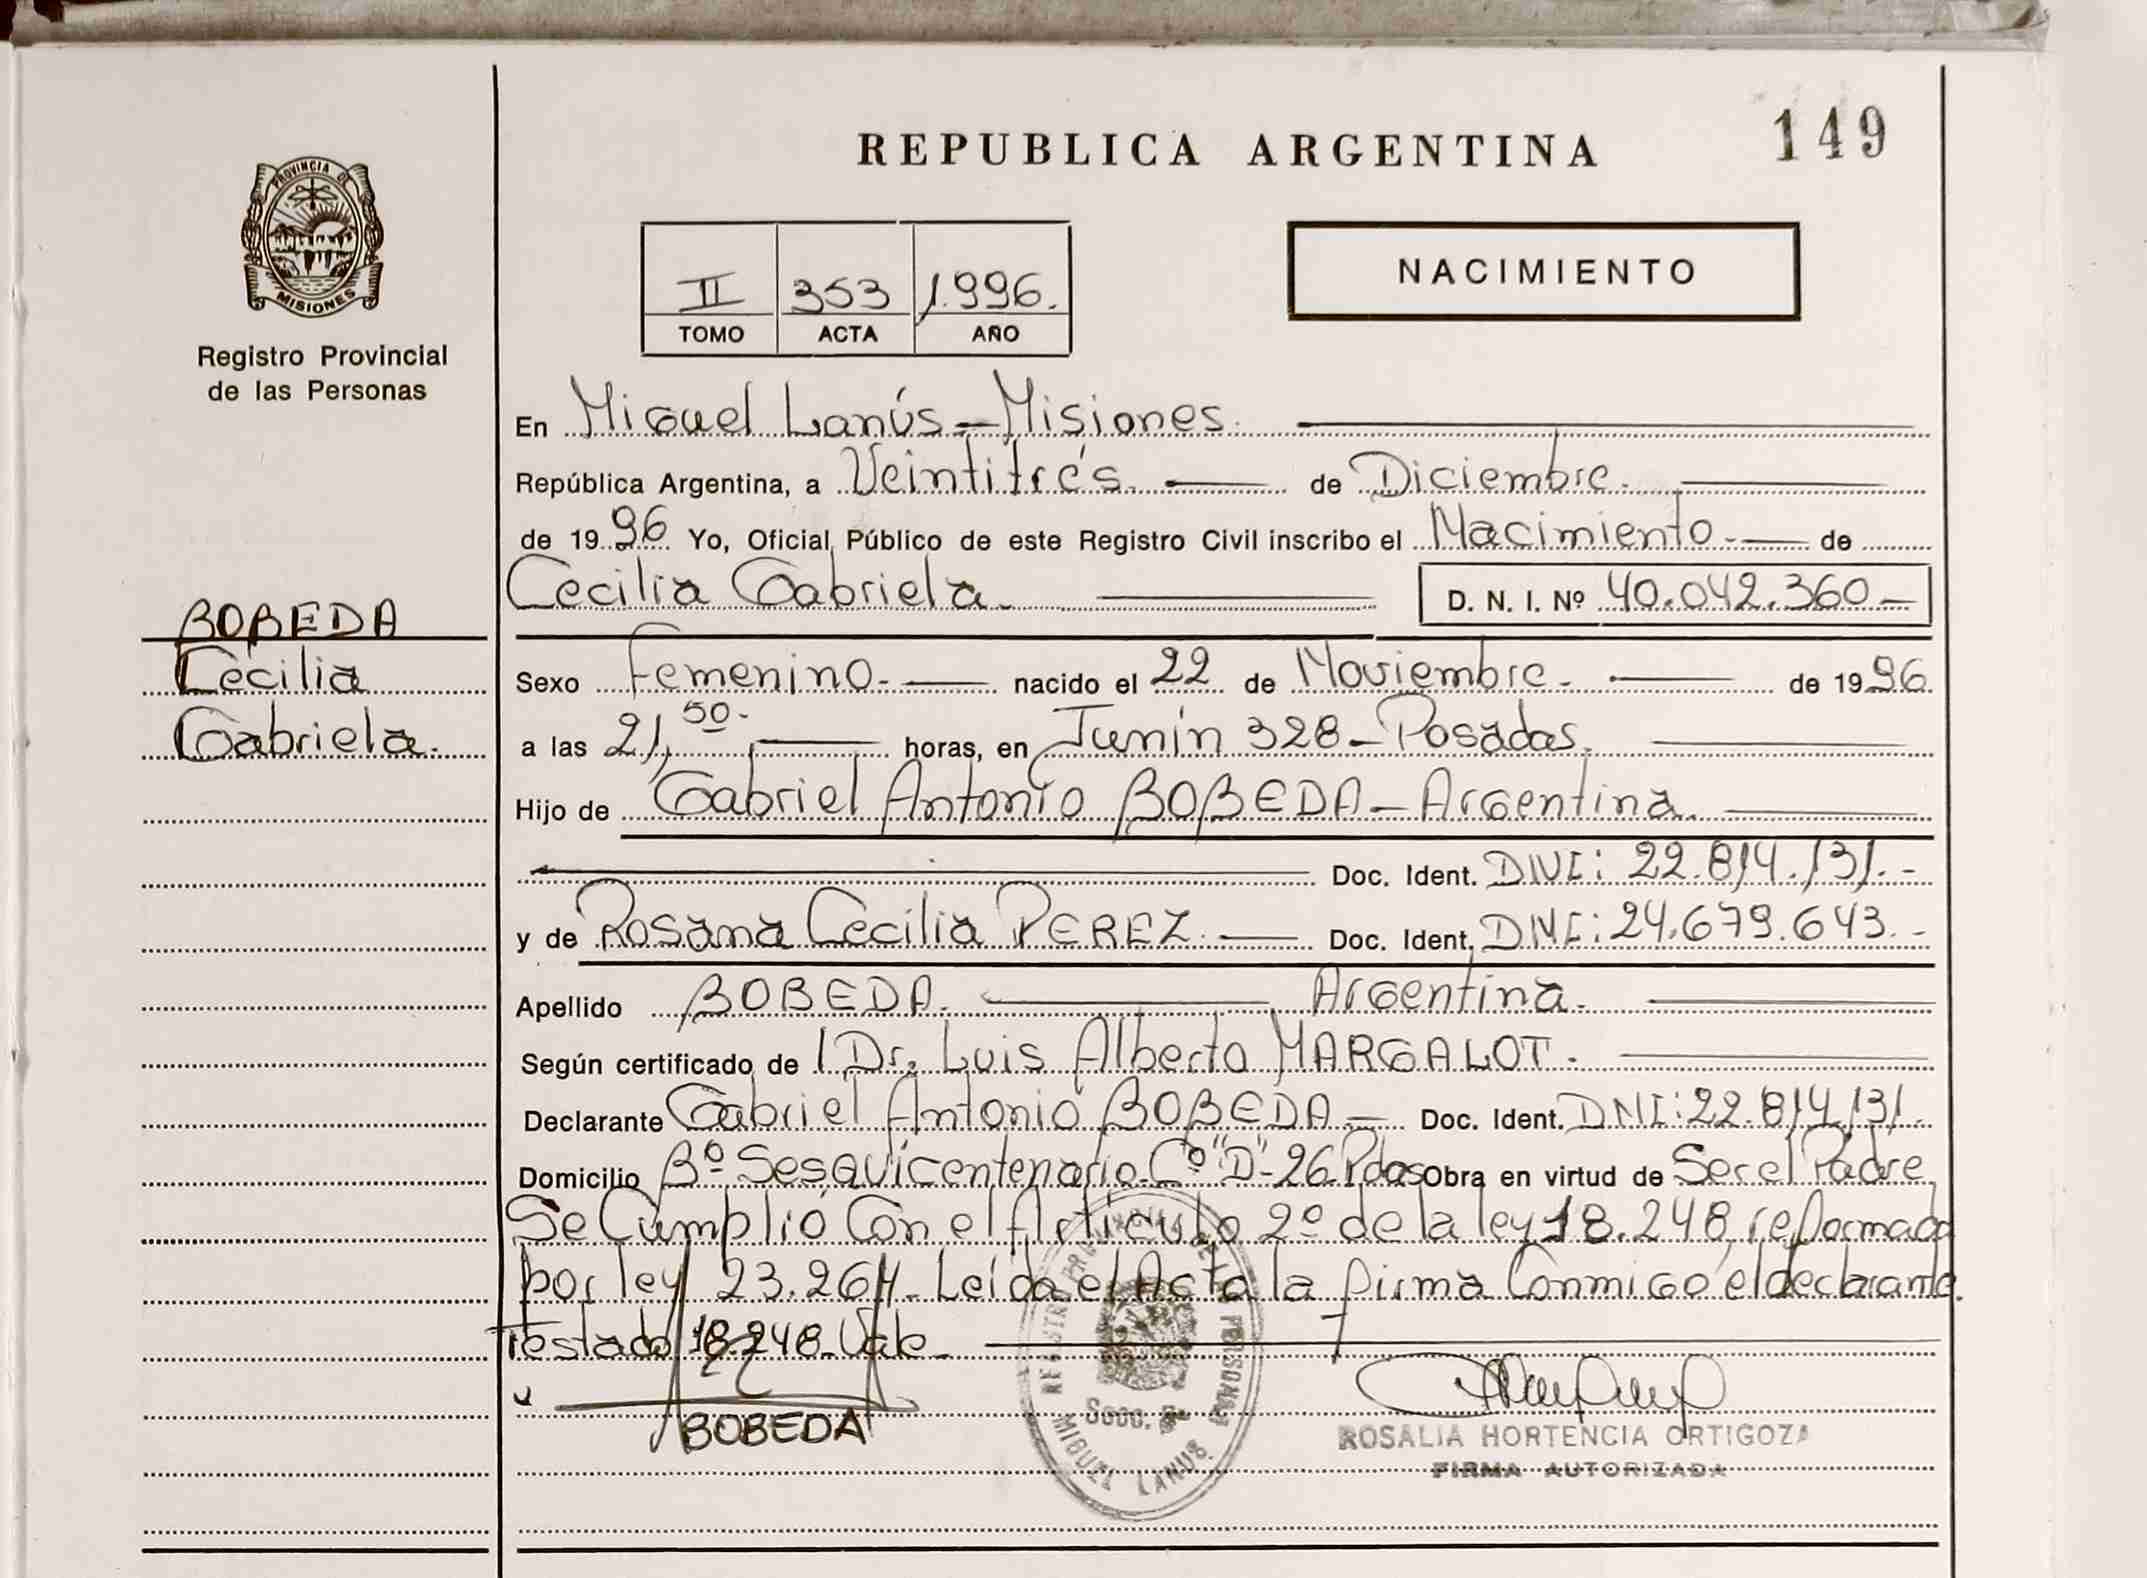 REPUBLICA ARGENTINA
149
PROVINCIA DE
MISIONES
Registro Provincial
de las Personas
II 353 1.996.
TOMO ACTA AÑO
NACIMIENTO
En Miguel Lanús - Misiones.
República Argentina, a Veintitrés. de Diciembre.
de 19 96 Yo, Oficial Público de este Registro Civil inscribo el Nacimiento.- de
Cecilia Gabriela.
D. N. I. Nº 40.042.360-
BOBEDA
Cecilia
Gabriela.
Sexo Femenino.- nacido el 22 de Noviembre.- de 19 96.
a las 21,50.- horas, en Junín 328 - Posadas.
Hijo de Gabriel Antonio BOBEDA - Argentina.
Doc. Ident. DNI: 22.814.131.-
y de Rosana Cecilia PEREZ.- Doc. Ident. DNI: 24.679.643.-
Apellido BOBEDA. Argentina.
Según certificado de l Dr. Luis Alberto MARGALOT.-
Declarante Gabriel Antonio BOBEDA.- Doc. Ident. DNI: 22.814.131.
Domicilio Bº Sesquicentenario Cº "D"-26 Pdas Obra en virtud de Ser el Padre
Se Cumplió Con el Artículo 2º de la ley 18.248, reformada
por ley 23.264. Leída el Acta la firma Conmigo el declarante.
Testado 18.248. Vale
BOBEDA
REGISTRO PROVINCIAL DE LAS PERSONAS
Secc. 2a
MIGUEL LANUS
ROSALIA HORTENCIA ORTIGOZA
FIRMA AUTORIZADA